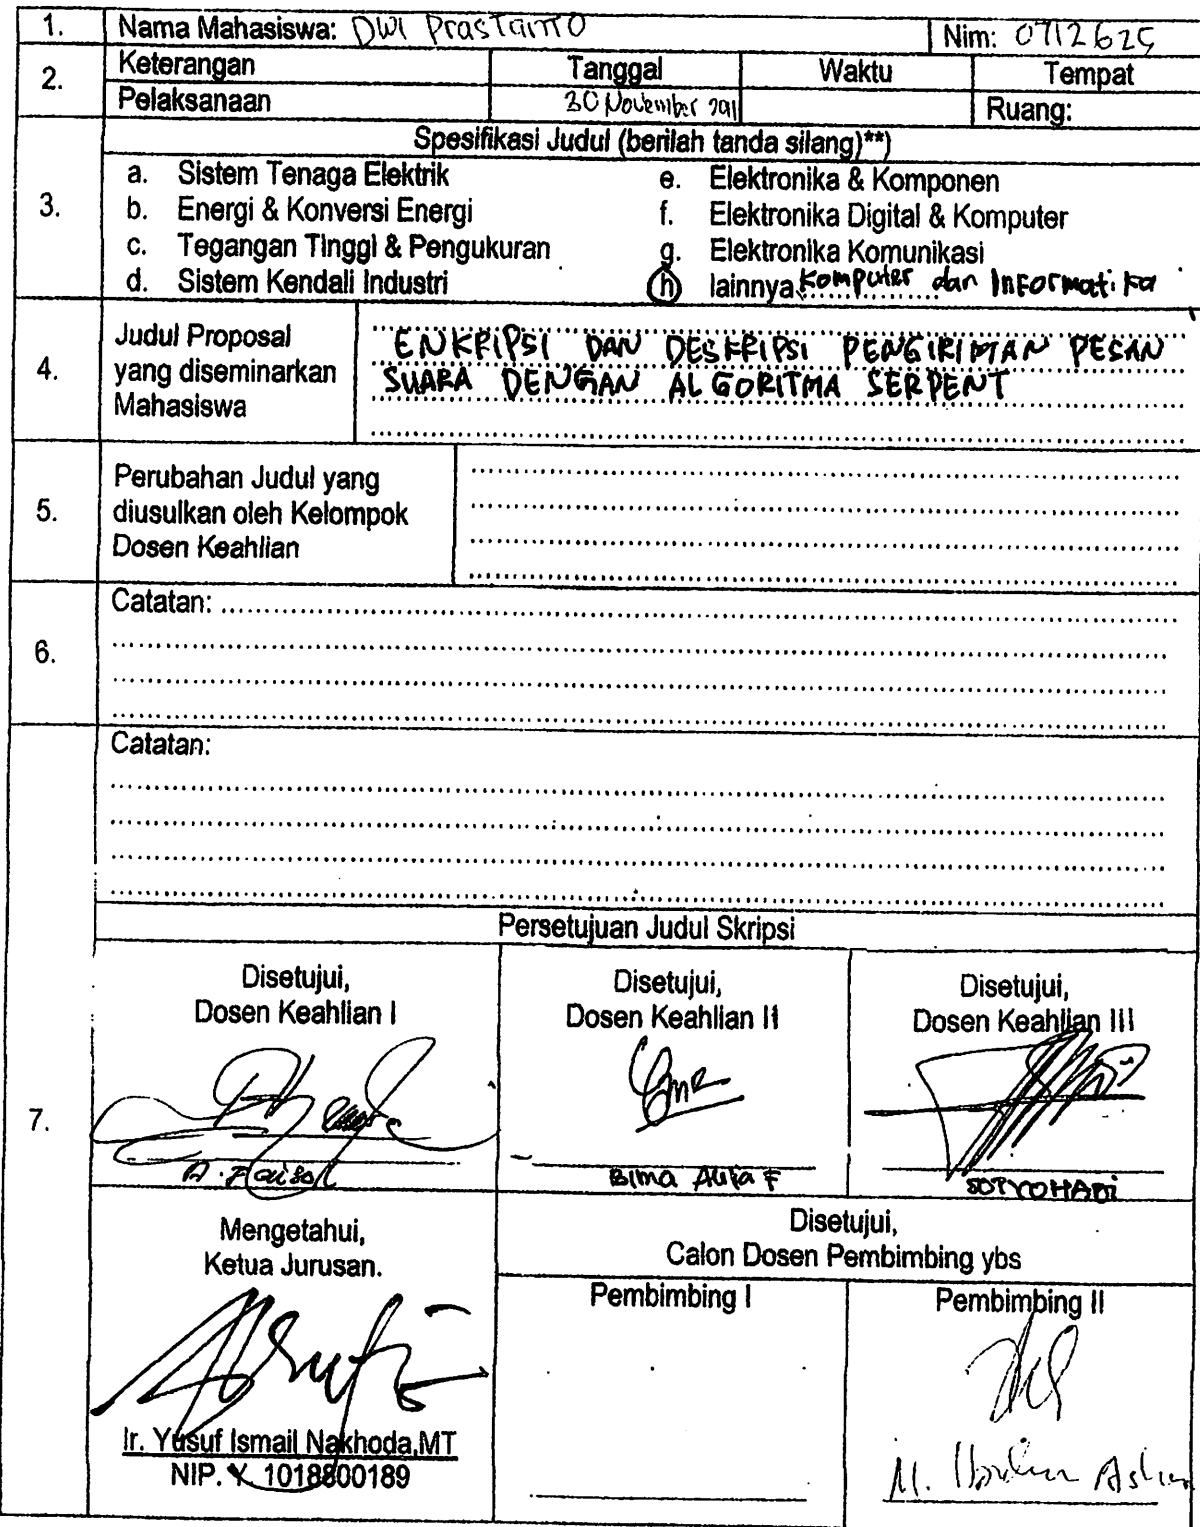 1. Nama Mahasiswa: Dwi Prastanto Nim: 0712625
2. Keterangan Tanggal Waktu Tempat
Pelaksanaan 30 November 2011 Ruang:
Spesifikasi Judul (berilah tanda silang)**)
3.
a. Sistem Tenaga Elektrik
b. Energi & Konversi Energi
c. Tegangan Tinggi & Pengukuran
d. Sistem Kendali Industri
e. Elektronika & Komponen
f. Elektronika Digital & Komputer
g. Elektronika Komunikasi
h lainnya Komputer dan Informatika
4.
Judul Proposal
yang diseminarkan
Mahasiswa
ENKRIPSI DAN DESKRIPSI PENGIRIMAN PESAN
SUARA DENGAN ALGORITMA SERPENT
5.
Perubahan Judul yang
diusulkan oleh Kelompok
Dosen Keahlian
6.
Catatan:
Catatan:
Persetujuan Judul Skripsi
7.
Disetujui,
Dosen Keahlian I
A. Faisol
Disetujui,
Dosen Keahlian II
Bima Aulia F
Disetujui,
Dosen Keahlian III
SOTYOHADI
Mengetahui,
Ketua Jurusan.
Ir. Yusuf Ismail Nakhoda,MT
NIP. Y. 1018800189
Disetujui,
Calon Dosen Pembimbing ybs
Pembimbing I
Pembimbing II
M. Ibrahim Ashari